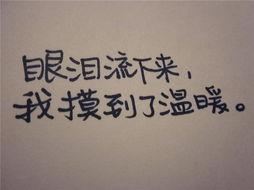 眼泪流下来，
我摸到了温暖。